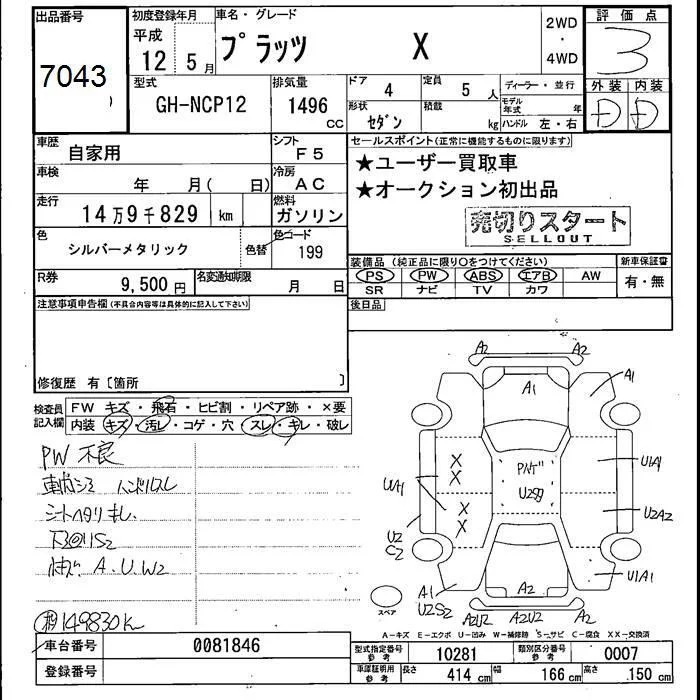 出品番号 初度登録年月 車名・グレード 2WD ・ 4WD 評価点
7043 平成 12年 5月 プラッツ X 3
型式 排気量 ドア 4 定員 5人 ディーラー・並行 外装 内装
GH-NCP12 1496 CC 形状 セダン 積載 kg モデル年式 年 ハンドル 左・右 D D
車歴 自家用 シフト F5 セールスポイント(正常に機能するものに限ります)
車検 年 月( 日) 冷房 AC ★ユーザー買取車
走行 14万9千829 km 燃料 ガソリン ★オークション初出品
色 シルバーメタリック 色替 色コード 199 売切りスタート
SELLOUT
R券 9,500円 名変通知期限 月 日 装備品(純正品に限り○をつけてください) 新車保証書
PS PW ABS エアB AW 有・無
SR ナビ TV カワ
注意事項申告欄(不具合内容等は具体的に記入して下さい) 後日品
修復歴 有〔箇所 〕
検査員記入欄 FW キズ・飛石・ヒビ割・リペア跡・×要
内装 キズ・汚レ・コゲ・穴・スレ・キレ・破レ
PW 不良
車内シミ ハンドルスレ
シートヘタリ キレ
下回りS2
A.U.W2
149830K
A2 A2
A1 A1
U1A1
U2
C2
U2A2
U1A1
A1
U2S2
A2
A2U2 A2U2 A2
スペア
A-キズ E-エクボ U-凹み W-補修跡 S-サビ C-腐食 XX-交換済
車台番号 0081846 型式指定番号 参考 10281 類別区分番号 参考 0007
登録番号 車庫証明用 参考 長さ 414 cm 幅 166 cm 高さ 150 cm